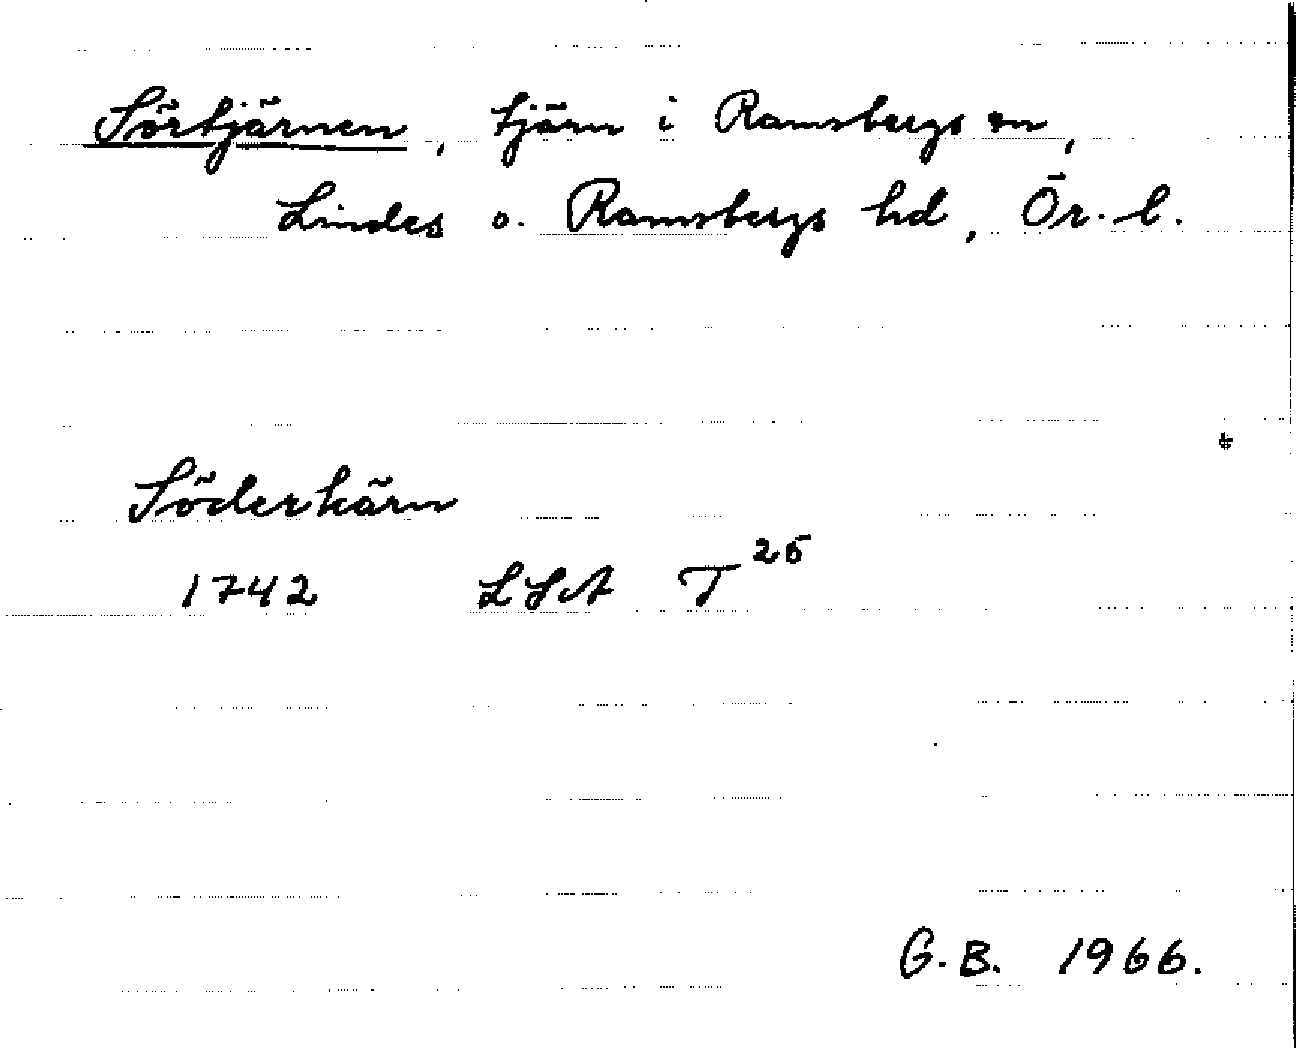 Sörtjärnen, tjärn i Ramsbergs sn,
Lindes o. Ramsbergs hd, Ör. l.
Söderkärn
1742 LSA T 25
G.B. 1966.